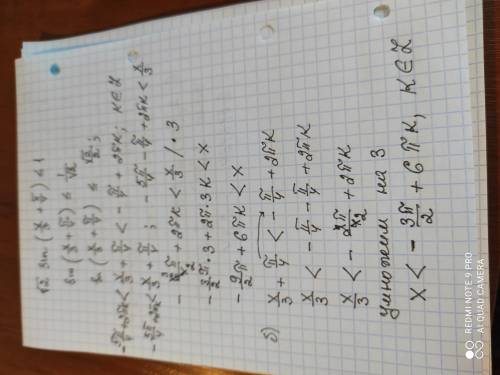 √2 sin (x/3 + π/4) ≤ 1
sin (x/3 + π/4) ≤ 1/√2
sin (x/3 + π/4) ≤ √2/2;
-5π/4 + 2πk < x/3 + π/4 < -π/4 + 2πk; k∈Z
-5π/4 + 2πk < x/3 + π/4; -5π/4 - π/4 + 2πk < x/3
-3π/2 + 2πk < x/3 / · 3
-3π/2 · 3 + 2π · 3k < x
-9π/2 + 6πk < x
б) x/3 + π/4 < -π/4 + 2πk
x/3 < -π/4 - π/4 + 2πk
x/3 < -2π/4 + 2πk
умножим на 3
x < -3π/2 + 6πk, k∈Z
REDMI NOTE 9 PRO